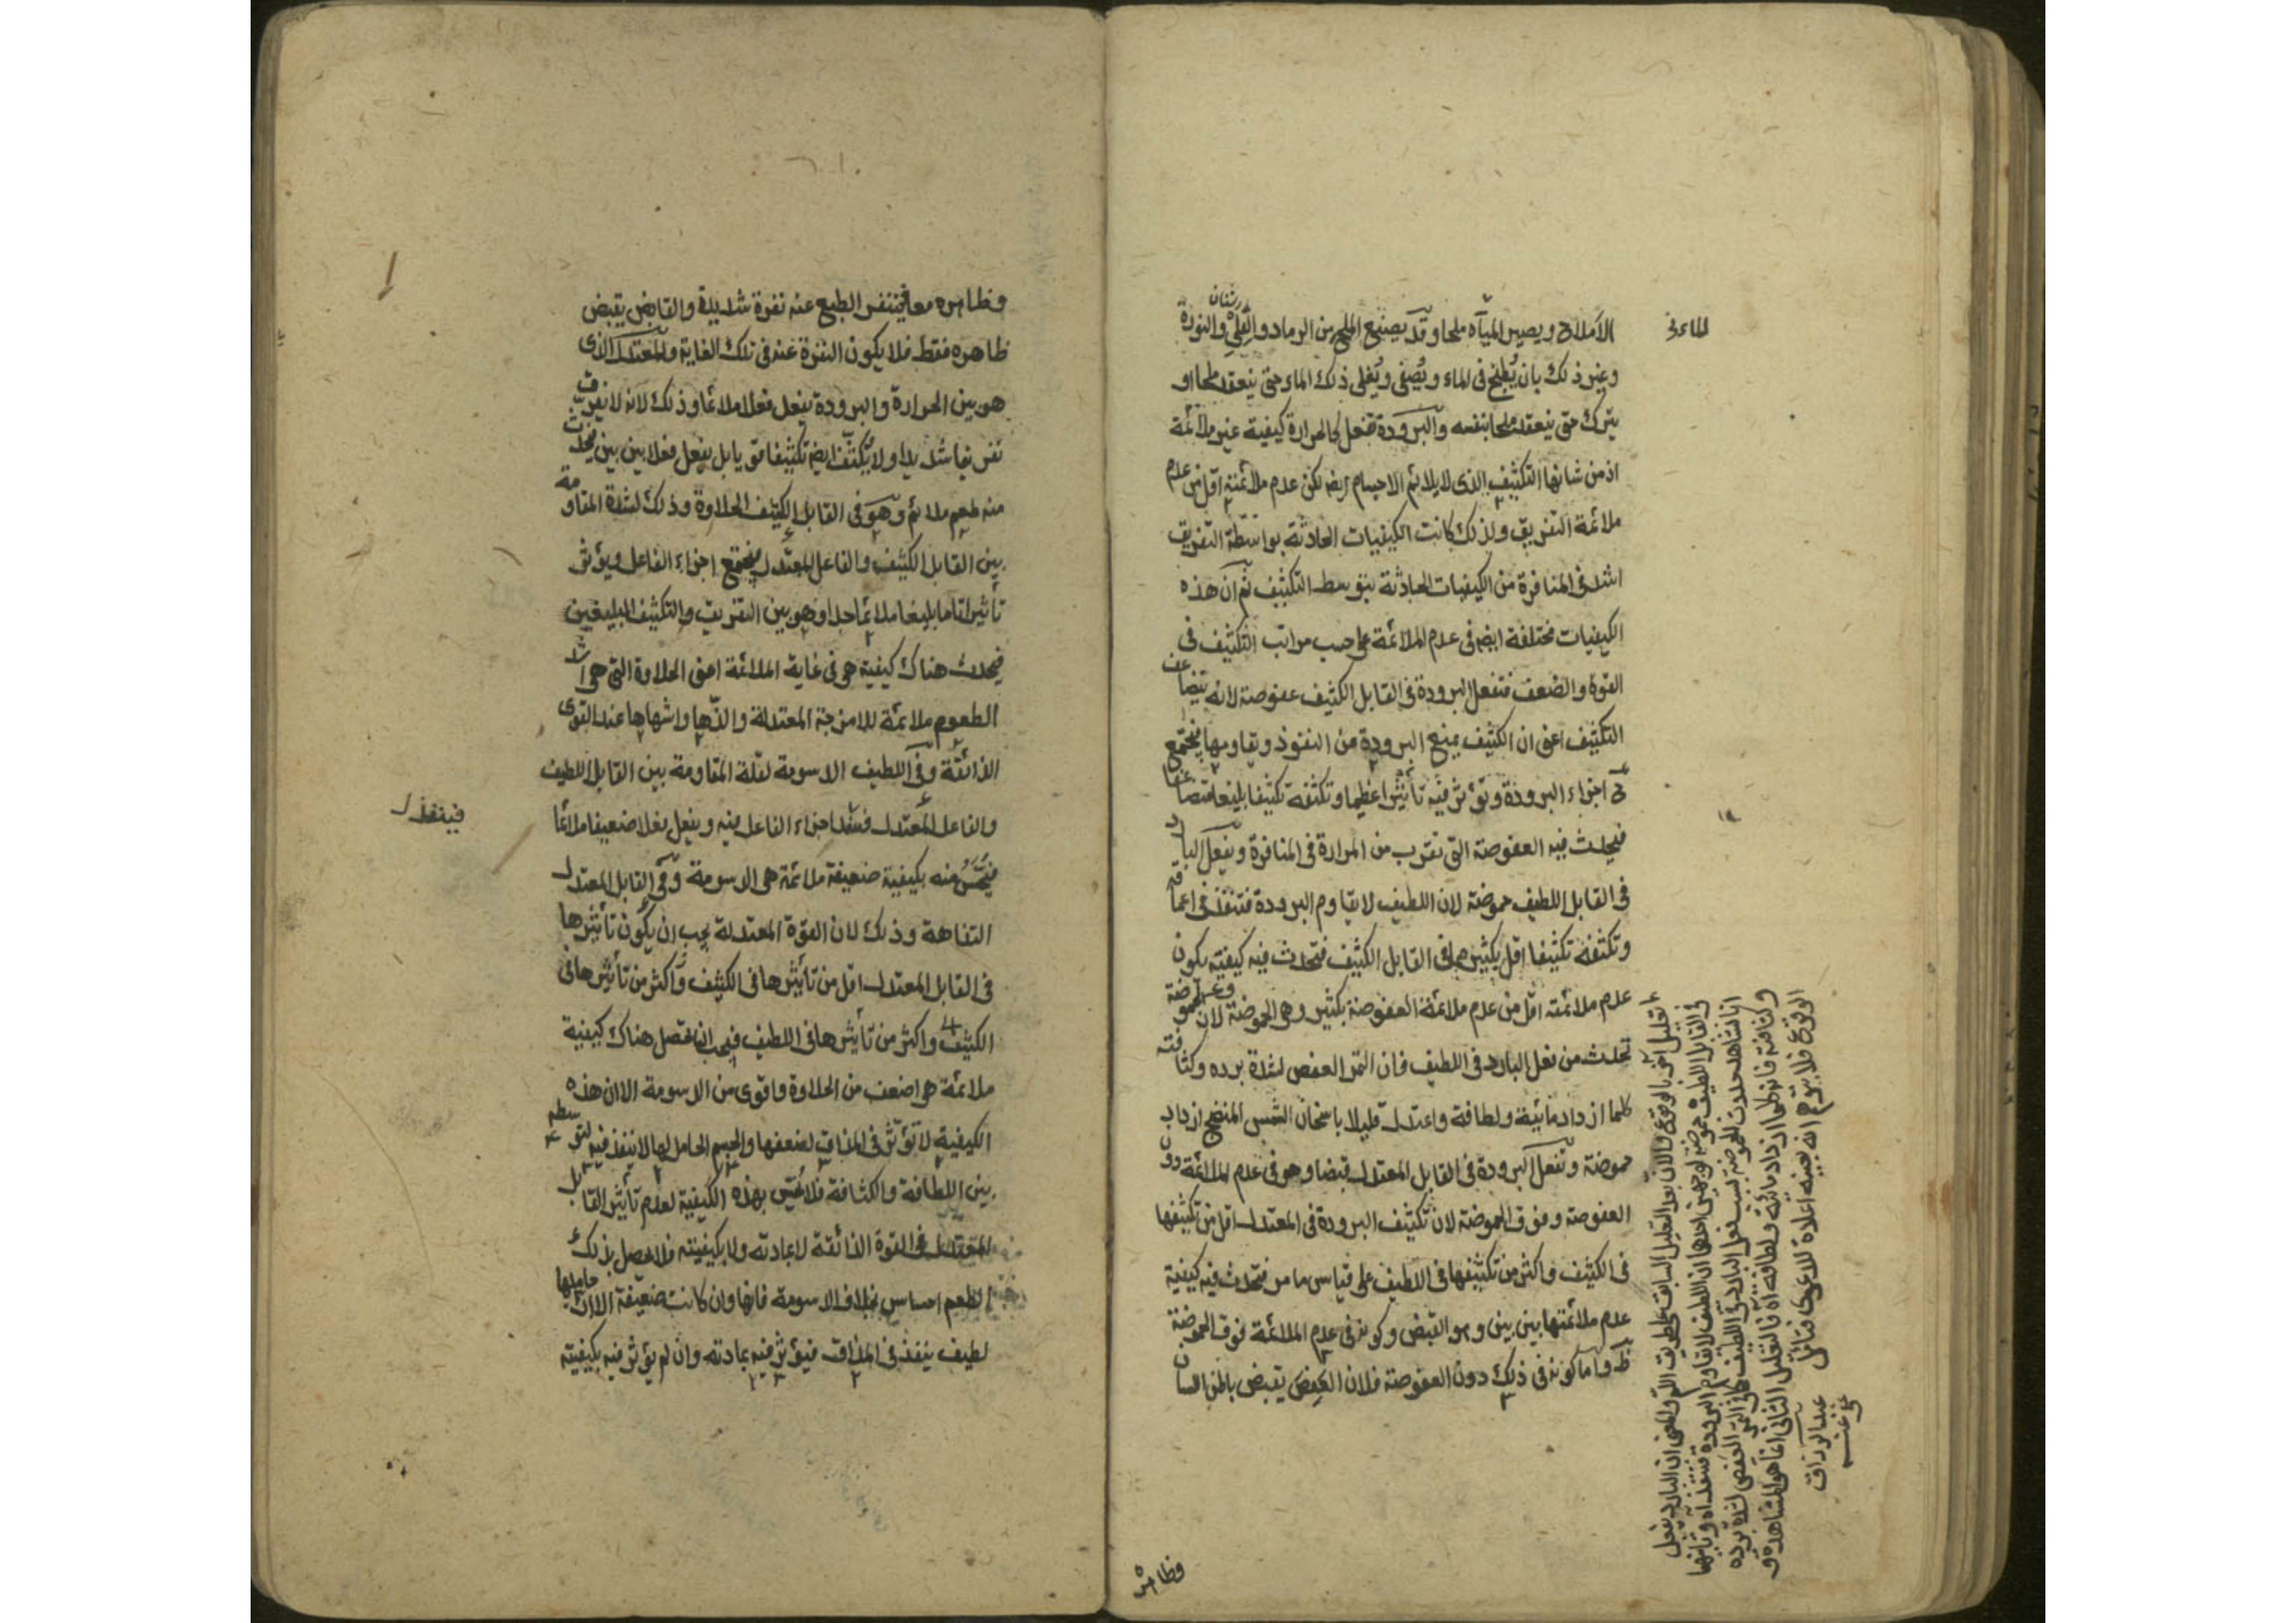 الاملاح ويصير المياه ملحا وقد يصنع الملح من الرماد والقلي والنورة
وغير ذلك بان يطبخ في الماء ويصفى ويغلى ذلك الماء حتى ينعقد ملحا او
يترك حتى ينعقد ملحا بنفسه والبرودة تفعل كالحرارة كيفية غير ملائمة
اذ من شانها التكثيف الذى لا يلائم الاجسام ايضا لكن عدم ملائمته اقل من عدم
ملائمة التفريق ولذلك كانت الكيفيات الحادثة بواسطة التفريق
اشد في المنافرة من الكيفيات الحادثة بتوسط التكثيف ثم ان هذه
الكيفيات مختلفة ايضا في عدم الملائمة على حسب مراتب التكثيف في
القوة والضعف فتفعل البرودة في القابل الكثيف عفوصة لانه يتضاعف
التكثيف اعنى ان الكثيف يمنع البرودة من النفوذ ويقاومها فيجتمع
اجزاء البرودة وتؤثر فيه تأثيرا عظيما وتكثفه تكثيفا بليغا متضاعفا
فيحدث فيه العفوصة التى تقرب من المرارة في المنافرة ويفعل البارد
في القابل اللطيف حموضة لان اللطيف لا يقاوم البرودة فتنفذ في اعماقه
وتكثفه تكثيفا اقل بكثير مما في القابل الكثيف فتحدث فيه كيفية يكون
عدم ملائمته اقل من عدم ملائمة العفوصة بكثير وهى الحموضة لان الحموضة
تحدث من فعل البارد في اللطيف فان الثمر العفص لشدة برده وكثافته
كلما ازداد مائية ولطافة واعتدل قليلا باسخان الشمس المنضج ازداد
حموضة وتفعل البرودة في القابل المعتدل قبضا وهو في عدم الملائمة دون
العفوصة وفوق الحموضة لان تكثيف البرودة في المعتدل اقل من تكثيفها
في الكثيف واكثر من تكثيفها في اللطيف على قياس ما مر فتحدث فيه كيفية
عدم ملائمتها بين بين وهو القبض وكونه في عدم الملائمة فوق الحموضة
ظ واما كونه في ذلك دون العفوصة فلان العفص يقبض باطن اللسان
وظاهره
وظاهره معا فيتنفر الطبع عنه نفرة شديدة والقابض يقبض
ظاهره فقط فلا يكون النفرة عنه في تلك الغاية والمعتدل الذى
هو بين الحرارة والبرودة يفعل فعلا ملائما وذلك لانه لا يفرق
تفريقا شديدا ولا يكثف ايضا تكثيفا قويا بل يفعل فعلا بين بين فيحدث
منه طعم ملائم وهو في القابل الكثيف الحلاوة وذلك لشدة المقاومة
بين القابل الكثيف والفاعل المعتدل فيجتمع اجزاء الفاعل ويؤثر
تأثيرا تاما بليغا ملائما جدا وهو بين التفريق والتكثيف البليغين
فيحدث هناك كيفية هى في غاية الملائمة اعنى الحلاوة التى هى اشد
الطعوم ملائمة للامزجة المعتدلة والذها واشهاها عند القوى
الذائقة وفي اللطيف الدسومة لقلة المقاومة بين القابل اللطيف
والفاعل المعتدل فينفذ اجزاء الفاعل فيه ويفعل فعلا ضعيفا ملائما
فيحس منه بكيفية ضعيفة ملائمة هى الدسومة وفي القابل المعتدل
التفاهة وذلك لان القوة المعتدلة يجب ان يكون تأثيرها
في القابل المعتدل اقل من تأثيرها في الكثيف واكثر من تأثيرها في
الكثيف واكثر من تأثيرها في اللطيف فيجب ان تحصل هناك كيفية
ملائمة هى اضعف من الحلاوة واقوى من الدسومة الا ان هذه
الكيفية لا تؤثر في المذاق لضعفها والجسم الحامل لها لا ينفذ فيه لتوسطه
بين اللطافة والكثافة فلا يحس بهذه الكيفية لعدم تأثير القابل
المعتدل في القوة الذائقة لا بمادته ولا بكيفيته فلا يحصل بذلك
الطعم احساس بخلاف الدسومة فانها وان كانت ضعيفة الا ان حاملها
لطيف ينفذ في المذاق فيؤثر فيه بمادته وان لم يؤثر فيه بكيفيته